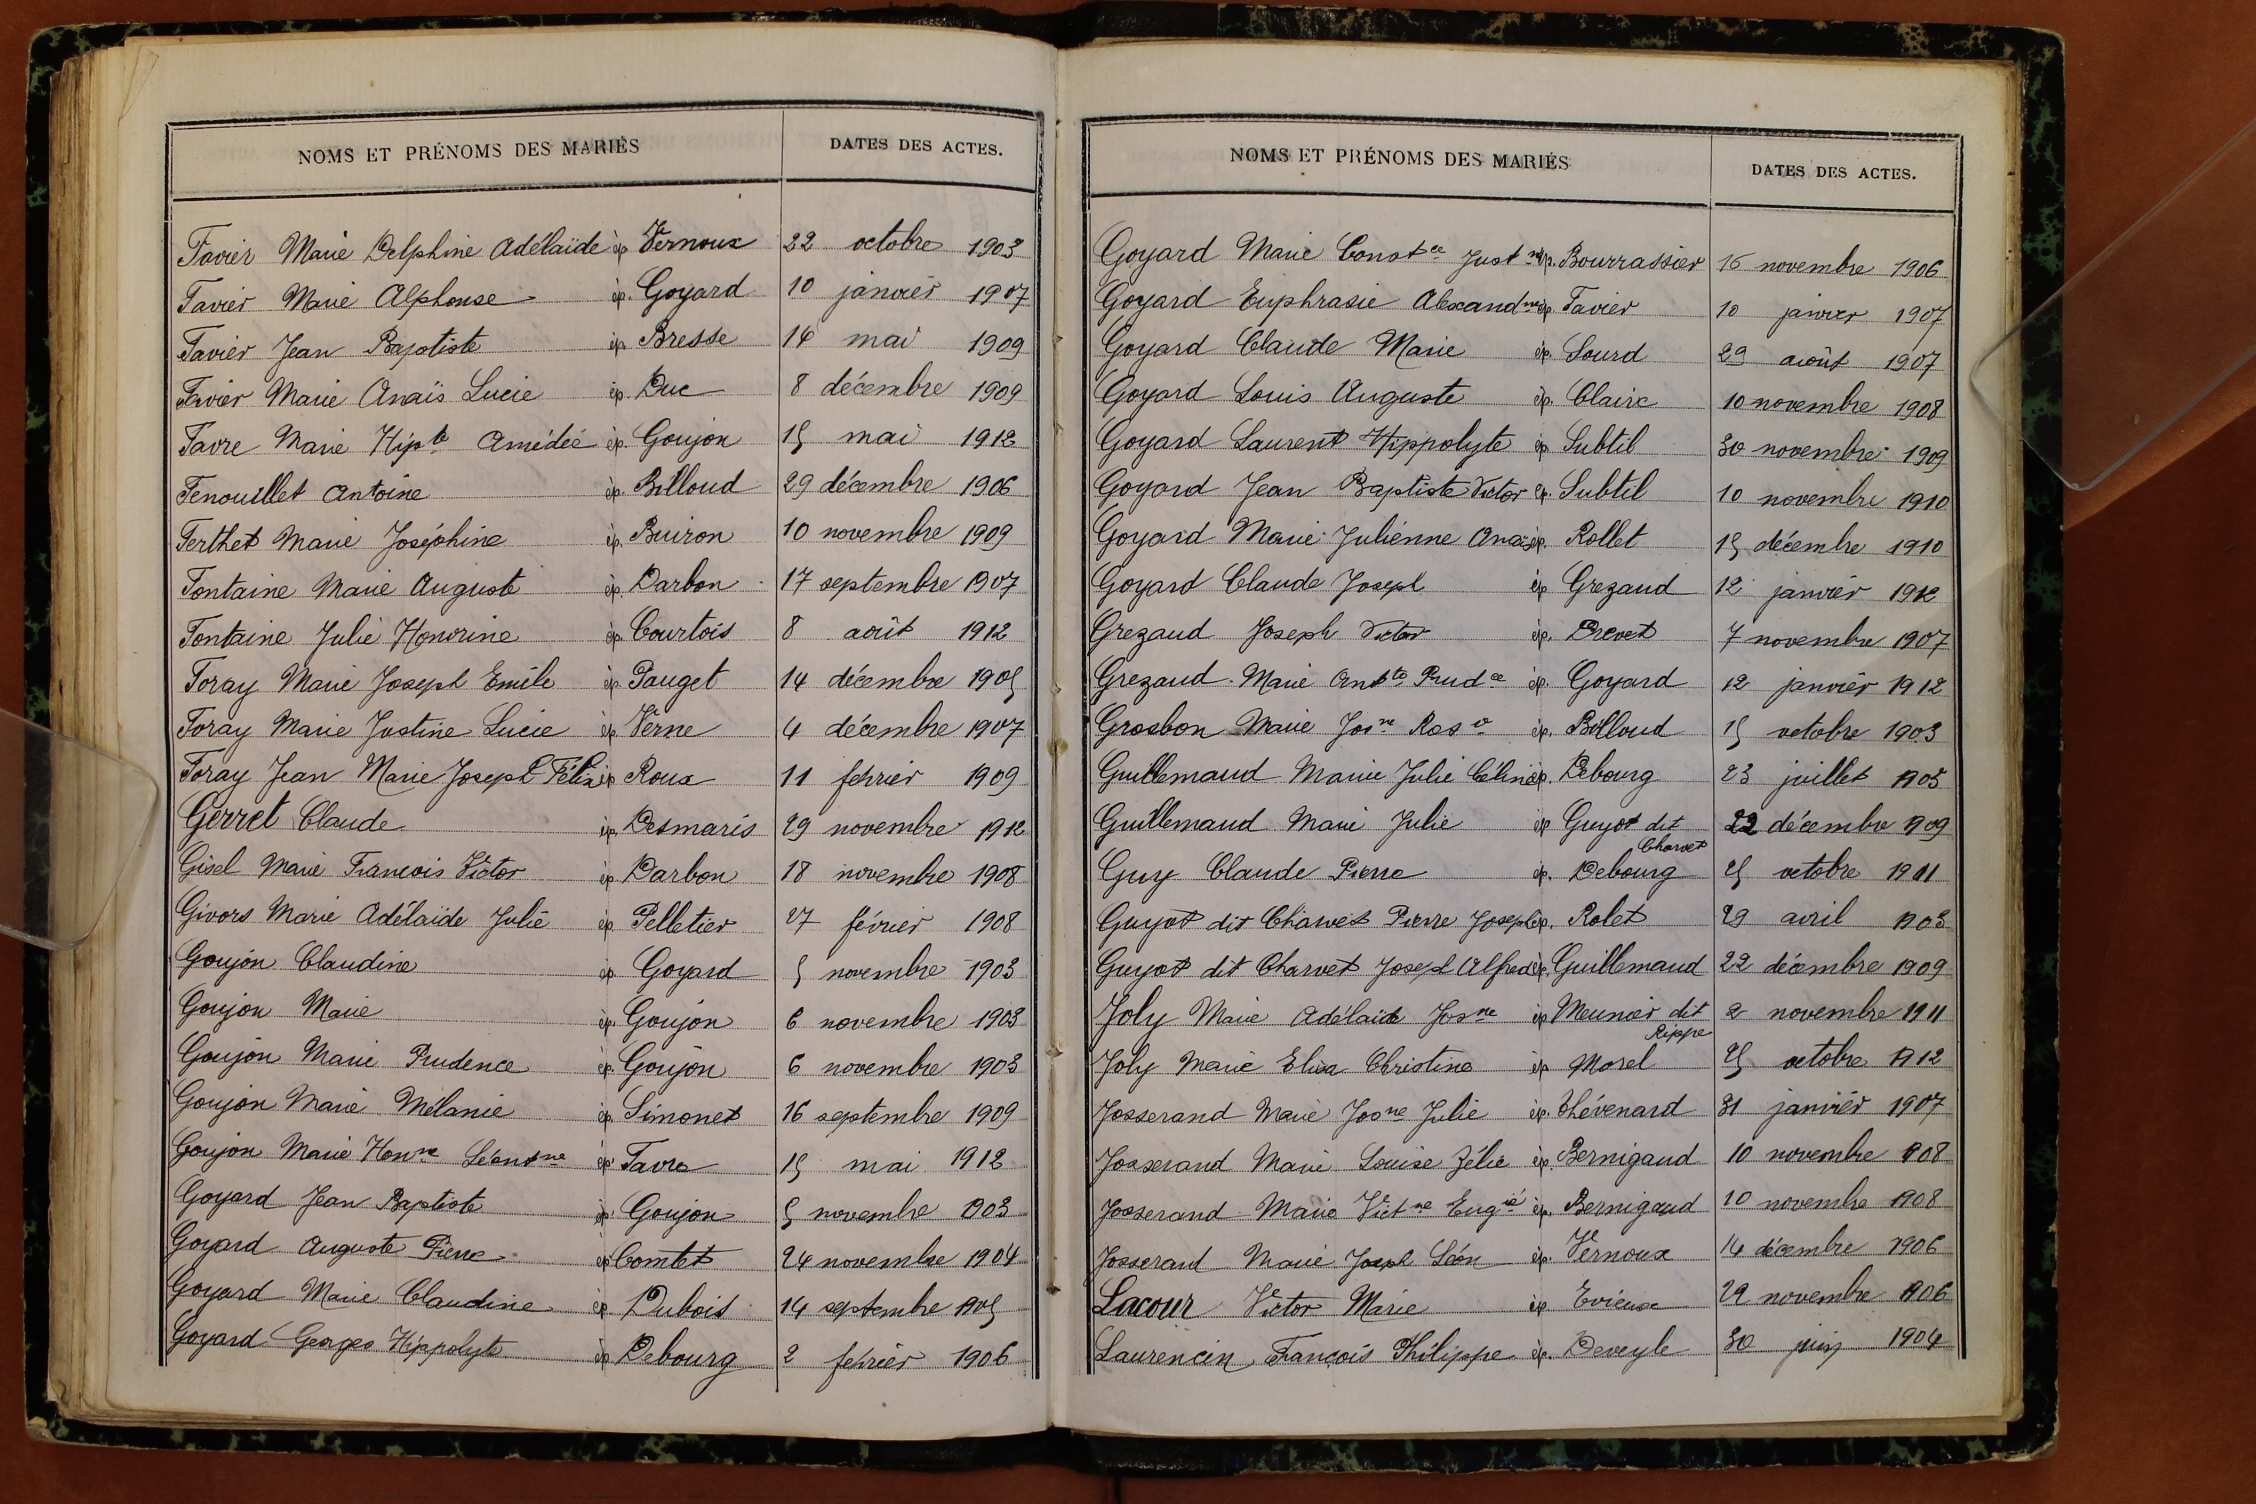 NOMS ET PRÉNOMS DES MARIÉS DATES DES ACTES.
Favier Marie Delphine Adélaïde ép. Vernoux 22 octobre 1903
Favier Marie Alphonse ép. Goyard 10 janvier 1907
Favier Jean Baptiste ép. Bresse 14 mai 1909
Favier Marie Anaïs Lucie ép. Duc 8 décembre 1909
Favre Marie Hipte Amédée ép. Goujon 15 mai 1912
Fenouillet Antoine ép. Billoud 29 décembre 1906
Ferthet Marie Joséphine ép. Buiron 10 novembre 1909
Fontaine Marie Auguste ép. Darbon 17 septembre 1907
Fontaine Julie Honorine ép. Courtois 8 août 1912
Foray Marie Joseph Emile ép. Pauget 14 décembre 1905
Foray Marie Justine Lucie ép. Verne 4 décembre 1907
Foray Jean Marie Joseph Félix ép. Roux 11 février 1909
Gerret Claude ép. Desmaris 29 novembre 1912
Gisel Marie François Victor ép. Darbon 18 novembre 1908
Givors Marie Adélaïde Julie ép. Pelletier 27 février 1908
Goujon Claudine ép. Goyard 5 novembre 1903
Goujon Marie ép. Goujon 6 novembre 1903
Goujon Marie Prudence ép. Goujon 6 novembre 1903
Goujon Marie Mélanie ép. Simonet 16 septembre 1909
Goujon Marie Honne Léontne ép. Favre 15 mai 1912
Goyard Jean Baptiste ép. Goujon 5 novembre 1903
Goyard Auguste Pierre ép. Comtet 24 novembre 1904
Goyard Marie Claudine ép. Dubois 14 septembre 1905
Goyard Georges Hippolyte ép. Debourg 2 février 1906
NOMS ET PRÉNOMS DES MARIÉS DATES DES ACTES.
Goyard Marie Constce Justne ép. Bourrassier 16 novembre 1906
Goyard Euphrasie Alexandne ép. Favier 10 janvier 1907
Goyard Claude Marie ép. Sourd 29 août 1907
Goyard Louis Auguste ép. Claire 10 novembre 1908
Goyard Laurent Hippolyte ép. Subtil 30 novembre 1909
Goyard Jean Baptiste Victor ép. Subtil 10 novembre 1910
Goyard Marie Julienne Anaïs ép. Rollet 15 décembre 1910
Goyard Claude Joseph ép. Grezaud 12 janvier 1912
Grezaud Joseph Victor ép. Drevet 7 novembre 1907
Grezaud Marie Antte Prudce ép. Goyard 12 janvier 1912
Grosbon Marie Josne ép. Billoud 15 octobre 1903
Guillemaud Marie Julie Céline ép. Debourg 23 juillet 1903
Guillemaud Marie Julie ép. Guyot dit Charvet 22 décembre 1909
Guy Claude Pierre ép. Debourg 25 octobre 1911
Guyot dit Charvet Pierre Joseph ép. Rolet 29 avril 1903
Guyot dit Charvet Joseph Alfred ép. Guillemaud 22 décembre 1909
Joly Marie Adélaïde Josne ép. Meunier dit Rippe 2 novembre 1911
Joly Marie Elisa Christine ép. Morel 25 octobre 1912
Josserand Marie Josne Julie ép. Thévenard 31 janvier 1907
Josserand Marie Louise Zélie ép. Bernigaud 10 novembre 1908
Josserand Marie Victne Engie ép. Bernigaud 10 novembre 1908
Josserand Marie Joseph Léon ép. Vernoux 14 décembre 1906
Lacour Victor Marie ép. Evieux 29 novembre 1906
Laurencin François Philippe ép. Deveyle 30 juin 1904